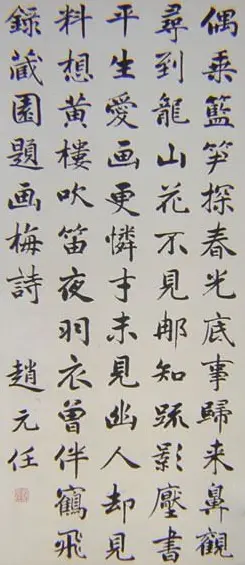 偶乘籃笋探春光底事歸来鼻觀
尋到龍山花不見那知疏影壓書
平生愛画更憐才未見幽人却見
料想黄樓吹笛夜羽衣曾伴鶴飛
錄藏園題画梅詩 趙元任